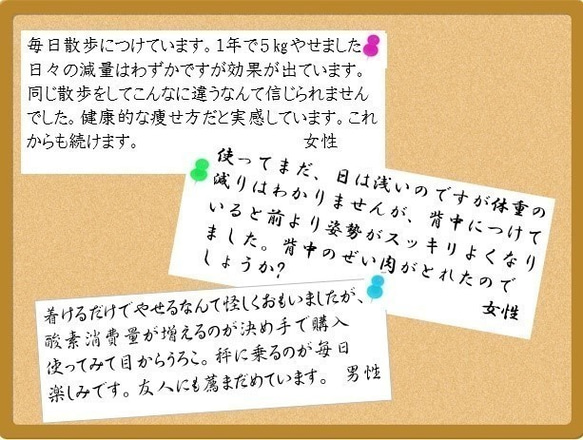 毎日散歩につけています。1年で5㎏やせました
日々の減量はわずかですが効果が出ています。
同じ散歩をしてこんなに違うなんて信じられません
でした。健康的な痩せ方だと実感しています。これ
からも続けます。 女性
使ってまだ、日は浅いのですが体重の
減りはわかりませんが、背中につけて
いると前より姿勢がスッキリよくなり
ました。背中のぜい肉がとれたので
しょうか?
女性
着けるだけでやせるなんて怪しくおもいましたが、
酸素消費量が増えるのが決め手で購入
使ってみて目からうろこ。秤に乗るのが毎日
楽しみです。友人にも薦まだめています。 男性